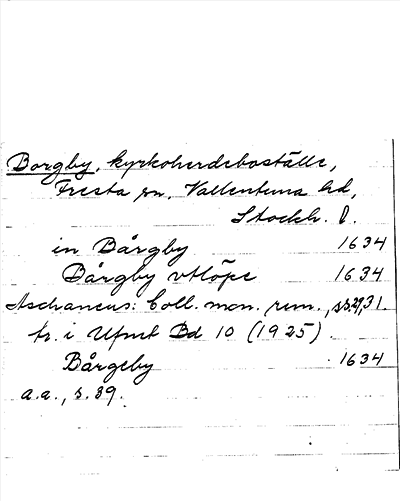 Borgby, kyrkoherdeboställe,
Fresta sn. Vallentuna hd,
Stockh. l.
in Bårgby 1634
Bårgby vtlöpe 1634
Aschaneus: Coll. mon. rem., ss. 29, 31.
tr. i Ufmt Bd 10 (1925)
Bårgeby 1634
a.a., s. 39.